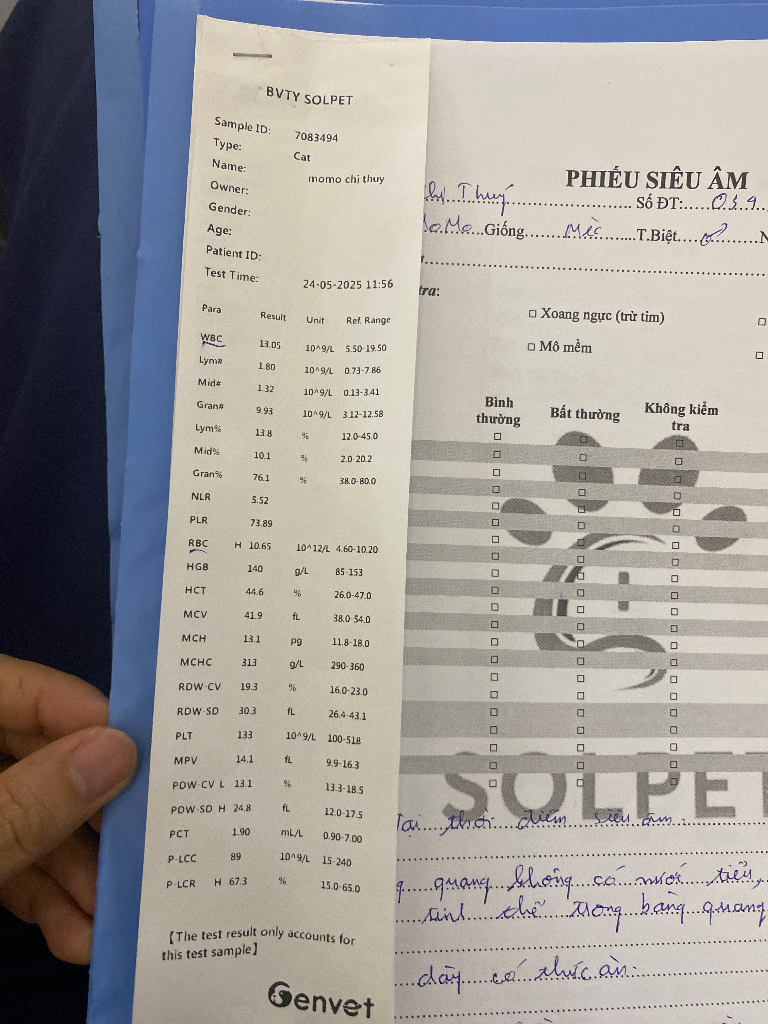 BVTY SOLPET
Sample ID: 7083494
Type: Cat
Name: momo chi thuy
Owner:
Gender:
Age:
Patient ID:
Test Time: 24-05-2025 11:56
Para Result Unit Ref. Range
WBC 13.05 10^9/L 5.50-19.50
Lym# 1.80 10^9/L 0.73-7.86
Mid# 1.32 10^9/L 0.13-3.41
Gran# 9.93 10^9/L 3.12-12.58
Lym% 13.8 % 12.0-45.0
Mid% 10.1 % 2.0-20.2
Gran% 76.1 % 38.0-80.0
NLR 5.52
PLR 73.89
RBC H 10.65 10^12/L 4.60-10.20
HGB 140 g/L 85-153
HCT 44.6 % 26.0-47.0
MCV 41.9 fL 38.0-54.0
MCH 13.1 pg 11.8-18.0
MCHC 313 g/L 290-360
RDW-CV 19.3 % 16.0-23.0
RDW-SD 30.3 fL 26.4-43.1
PLT 133 10^9/L 100-518
MPV 14.1 fL 9.9-16.3
PDW-CV L 13.1 % 13.3-18.5
PDW-SD H 24.8 fL 12.0-17.5
PCT 1.90 mL/L 0.90-7.00
P-LCC 89 10^9/L 15-240
P-LCR H 67.3 % 15.0-65.0
【The test result only accounts for
this test sample】
Genvet
PHIẾU SIÊU ÂM
Thuý Số ĐT: 039
MoMo Giống Mèo T.Biệt ♂ N
tra:
Xoang ngực (trừ tim)
Mô mềm
Bình thường Bất thường Không kiểm tra
SOLPET
Tại thời điểm siêu âm:
quang không có nước tiểu,
tinh thể trong bàng quang
dày có thức ăn.